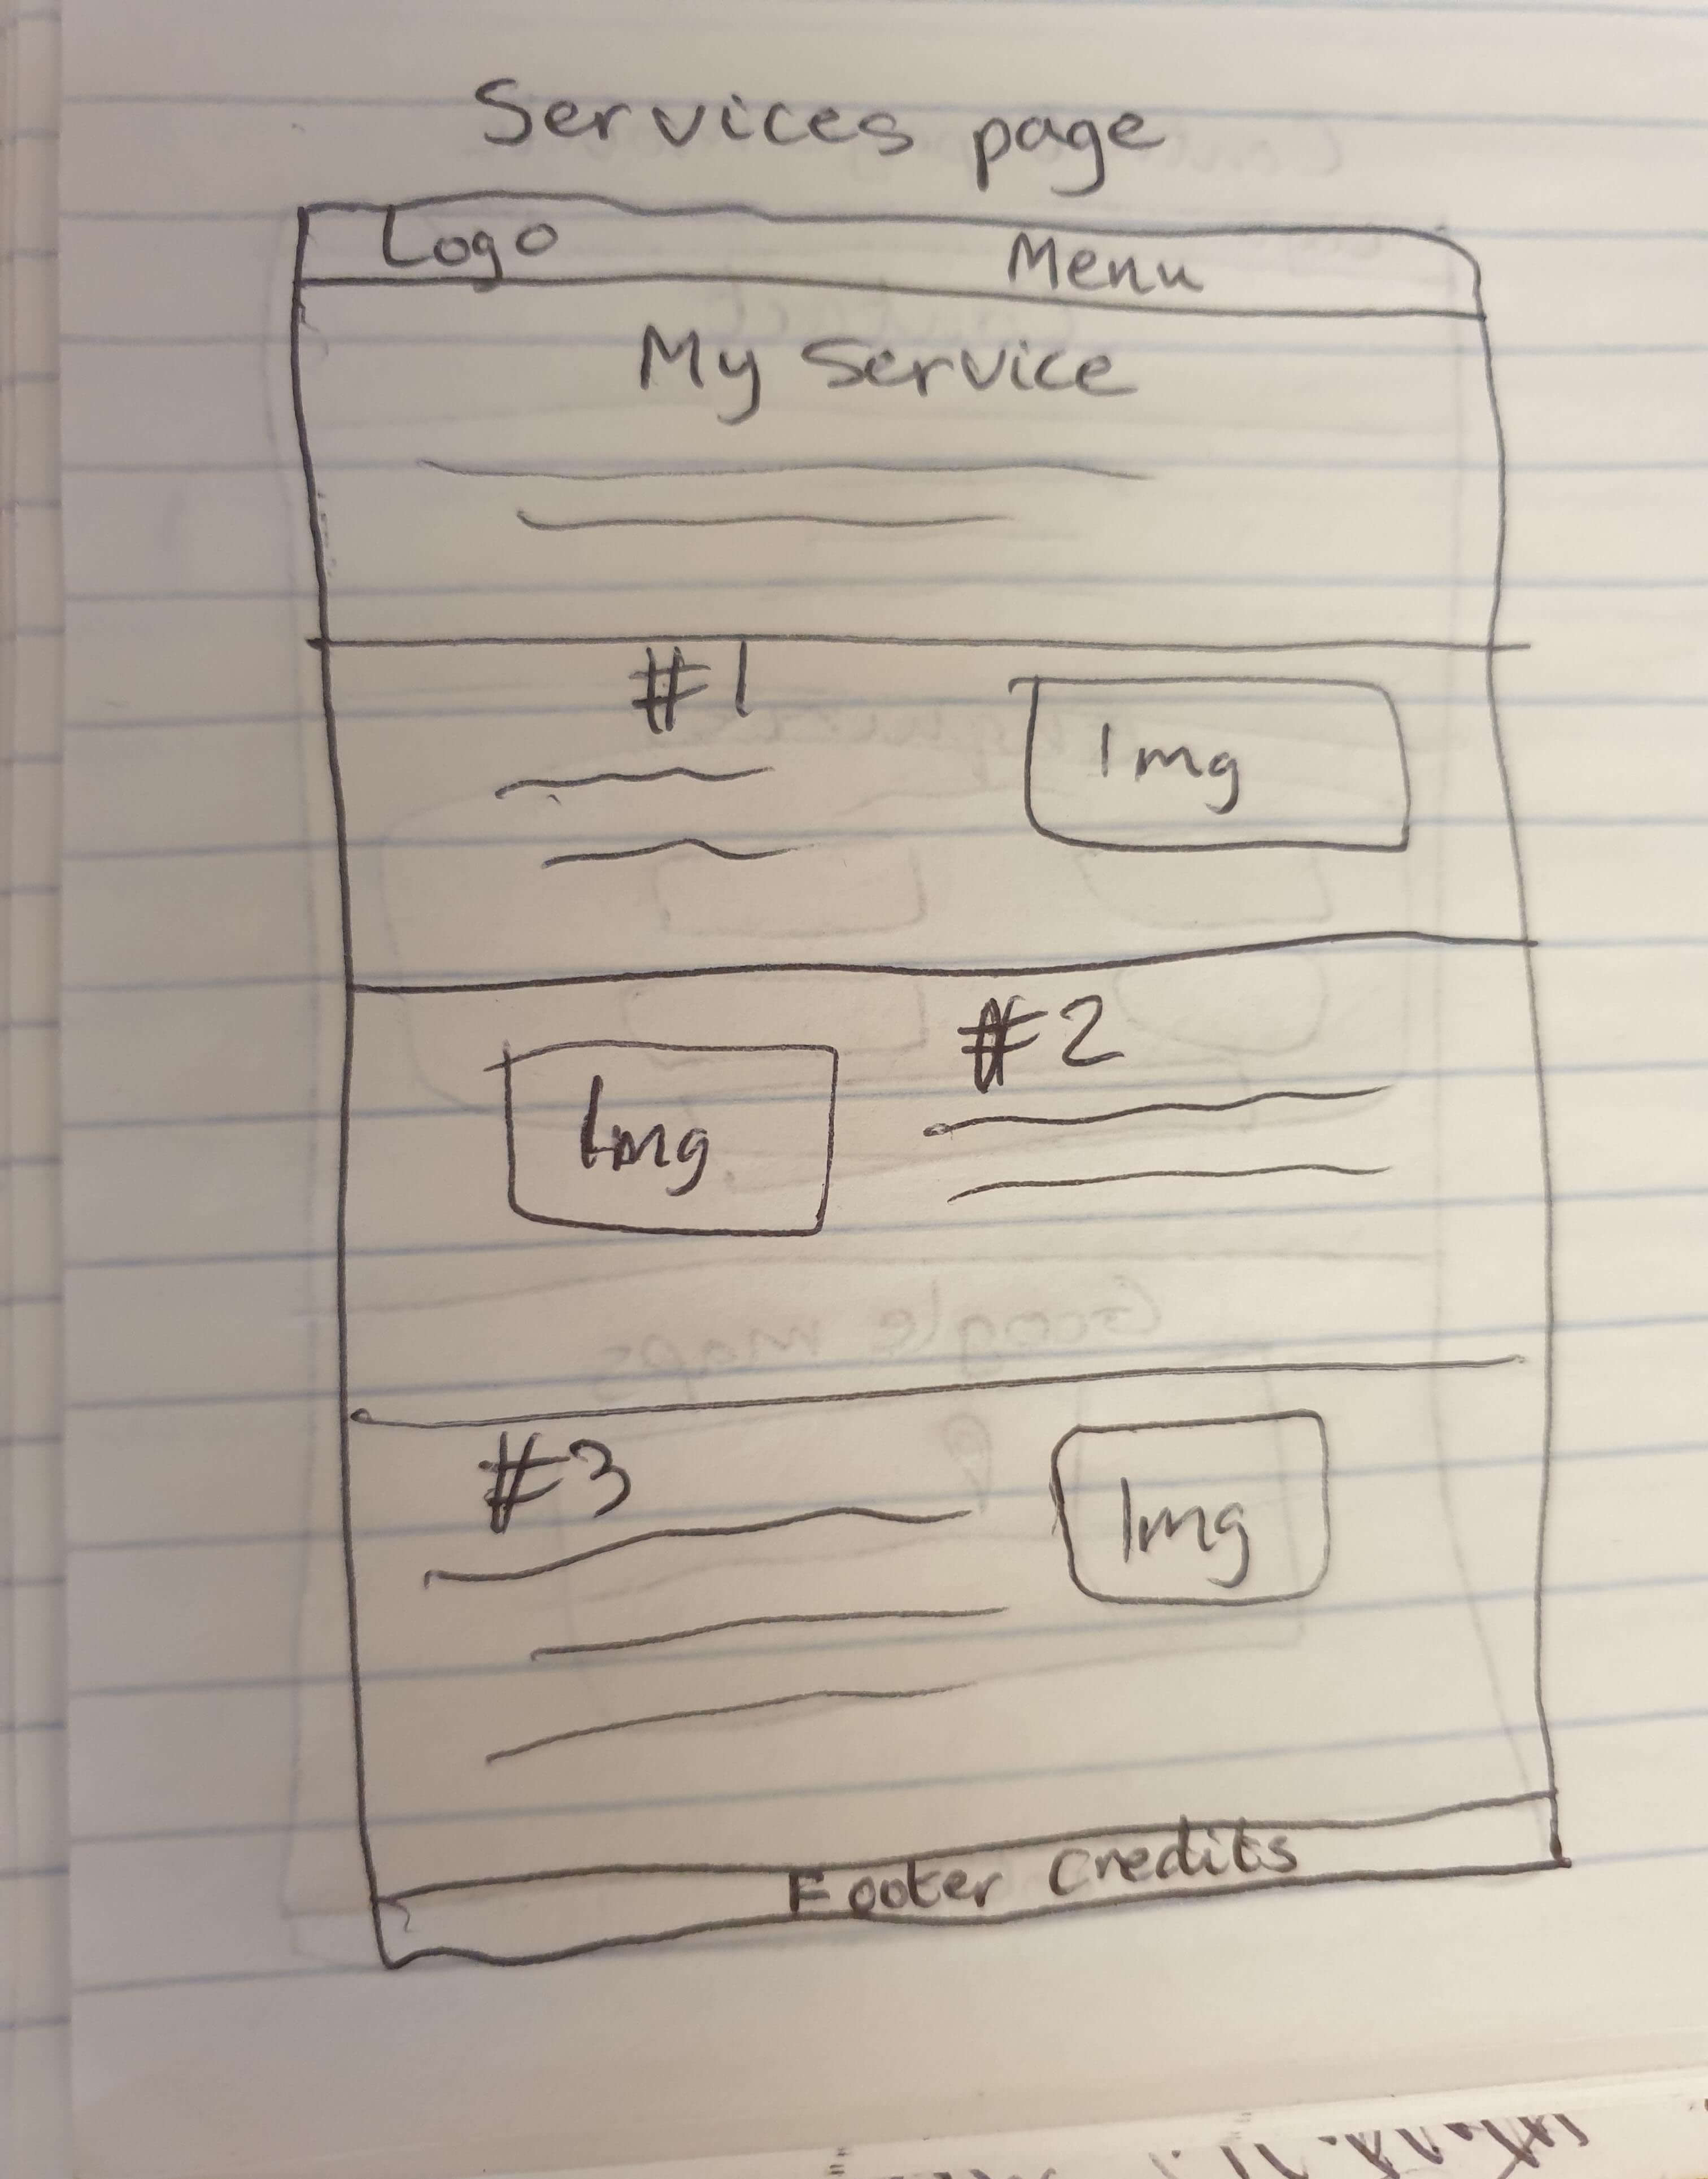 Services page
Logo Menu
My Service
#1
Img
#2
Img
#3
Img
Footer Credits
Google maps